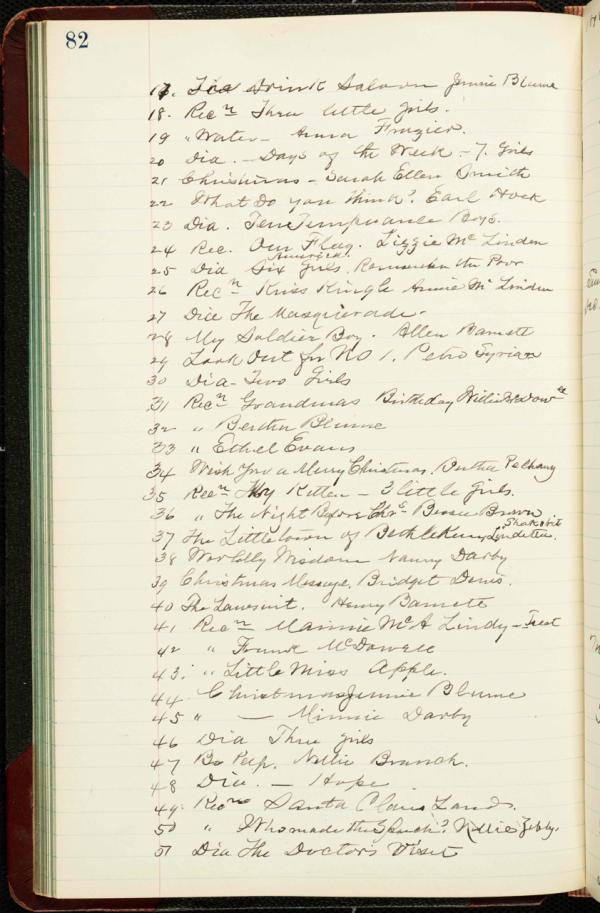 82
17. Drink Saloon Jennie Blume
18. Recn Three little girls.
19 " Water - Anna Frazier.
20 Dia. - Days of the Week - 7. Girls
21 Christmas - Sarah Ellen Smith
22 What Do you think? Earl Hock
23 Dia. Ten Temperance Boys.
24 Rec. Our Flag. Lizzie Mc Linden
25 Dia Six Girls. Remember the Poor
26 Recn Kriss Kingle Annie Mc Linden
27 Dia The Masquerade.
28 My Soldier Boy. Ellen Barnett
29 Look Out for No 1. Petro Syrian
30 Dia - Two Girls
31 Recn Grandmas Birthday Willie
32 " Bertha Blume
33 " Ethel Evans
34 Wish You a Merry Christmas. Bertha
35 Recn My Kitten - 3 little Girls.
36 " The Night Before Chrs. Bessie Brown
37 The Little town of Bethlehem
38 Worldly Wisdom Nanny Darby
39 Christmas Message, Bridget Denis.
40 The Lawsuit. Henry Barnett
41 Recn Mannie McA Lindy - Treat
42 " Frank McDowell
43. " Little Miss Apple.
44 Christmas Jennie Blume
45 " - Minnie Darby
46 Dia Three Girls
47 Bo Peep. Nellie Branch.
48 Dia. - Hope
49. Recn Santa Claus Land.
50 " Who made the Speech? Nellie
51 Dia The Doctor's Visit